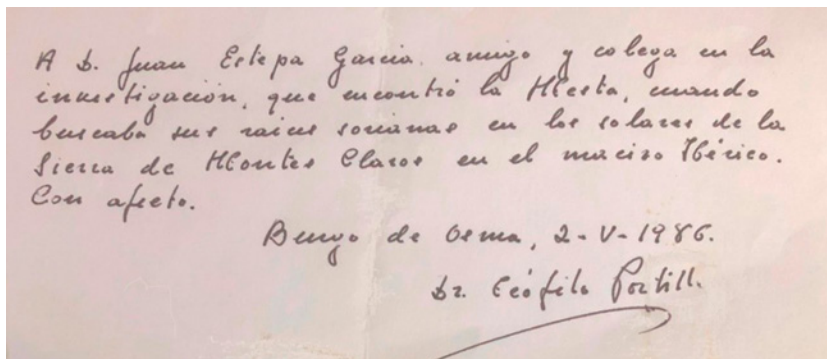 A D. Juan Estepa García, amigo y colega en la
investigación, que encontró la Mesta, cuando
buscaba sus raices sorianas en los solares de la
Sierra de Montes Claros en el macizo Ibérico.
Con afecto.
Burgo de Osma, 2-V-1986.
Dr. Teófilo Portill.